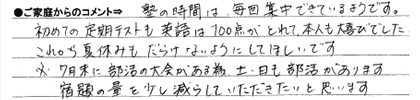 ●ご家庭からのコメント⇒ 塾の時間は、毎回集中できているようです。
初めての定期テストも英語は100点がとれて、本人も大喜びでした
これから夏休みもだらけないようにしてほしいです
※7月末に部活の大会がある為、土・日も部活があります
宿題の量を少し減らしていただきたいと思います